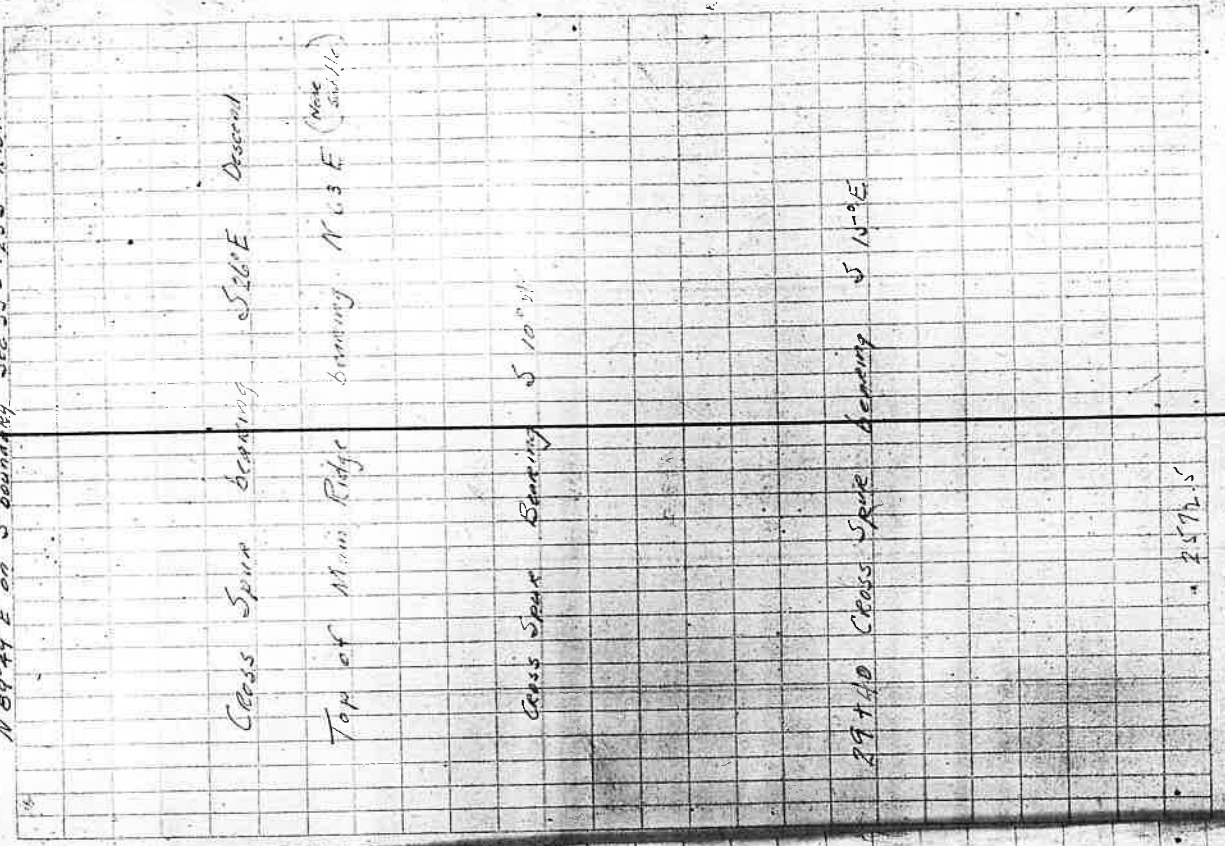 N 89°49' E on S boundary Sec
Cross Spur bearing S 26° E Descend
Top of Main Ridge bearing N 63 E (Note
Cross Spur Bearing S 10°
29+40 Cross Spur bearing S 15° E
2572.5